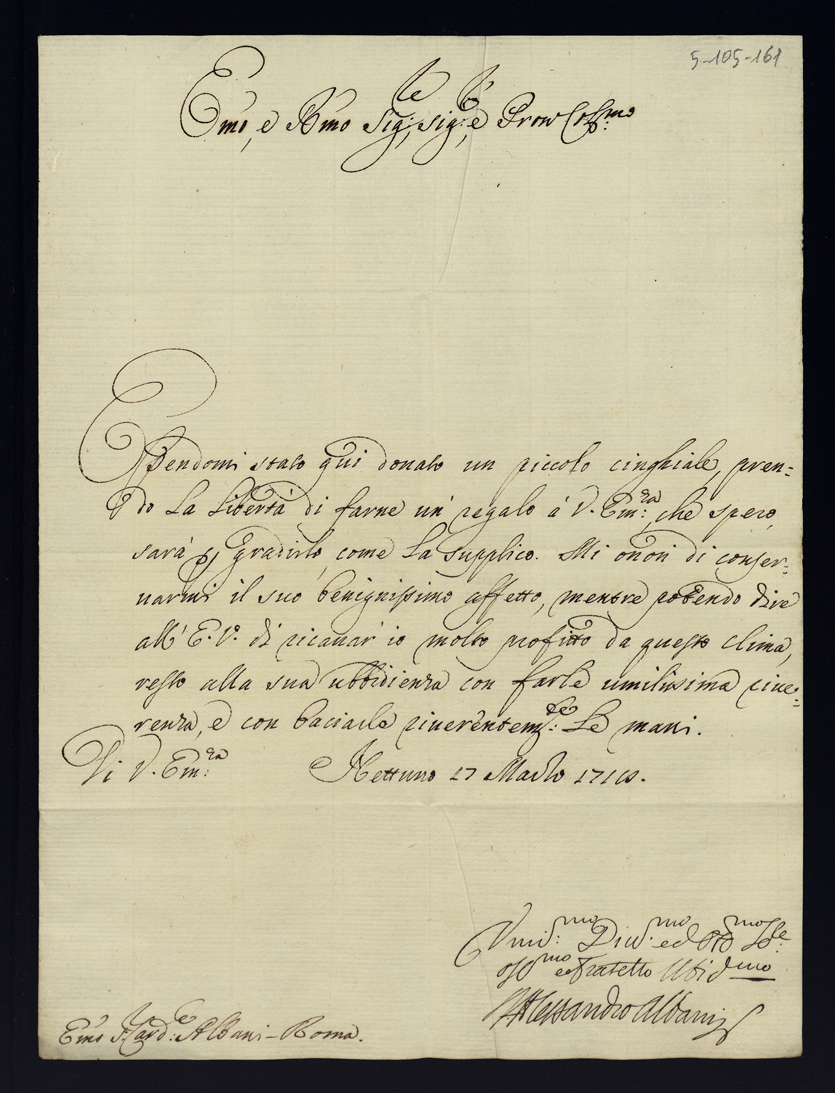 5-105-161
Emo, e Rmo Sig:re, Sig:re e Pron Col:mo
Essendomi stato qui donato un piccolo cinghiale, pren-
do La Libertà di farne un regalo à V. Em:za che spero,
sarà p gradirlo, come La supplico. Mi onori di conser-
uarmi il suo benignissimo affetto, mentre potendo dire
all' E. V. di ricauar io molto profitto da questo clima,
resto alla sua ubbidienza con farle umilissima riue-
renza, e con baciarle riuerentem:te Le mani.
Di V. Em:za Nettuno 17 Marzo
Umil:mo Diu:mo ed
oss:mo e Fratello
Alessandro Albani
Emo S. Card:e Albani - Roma.